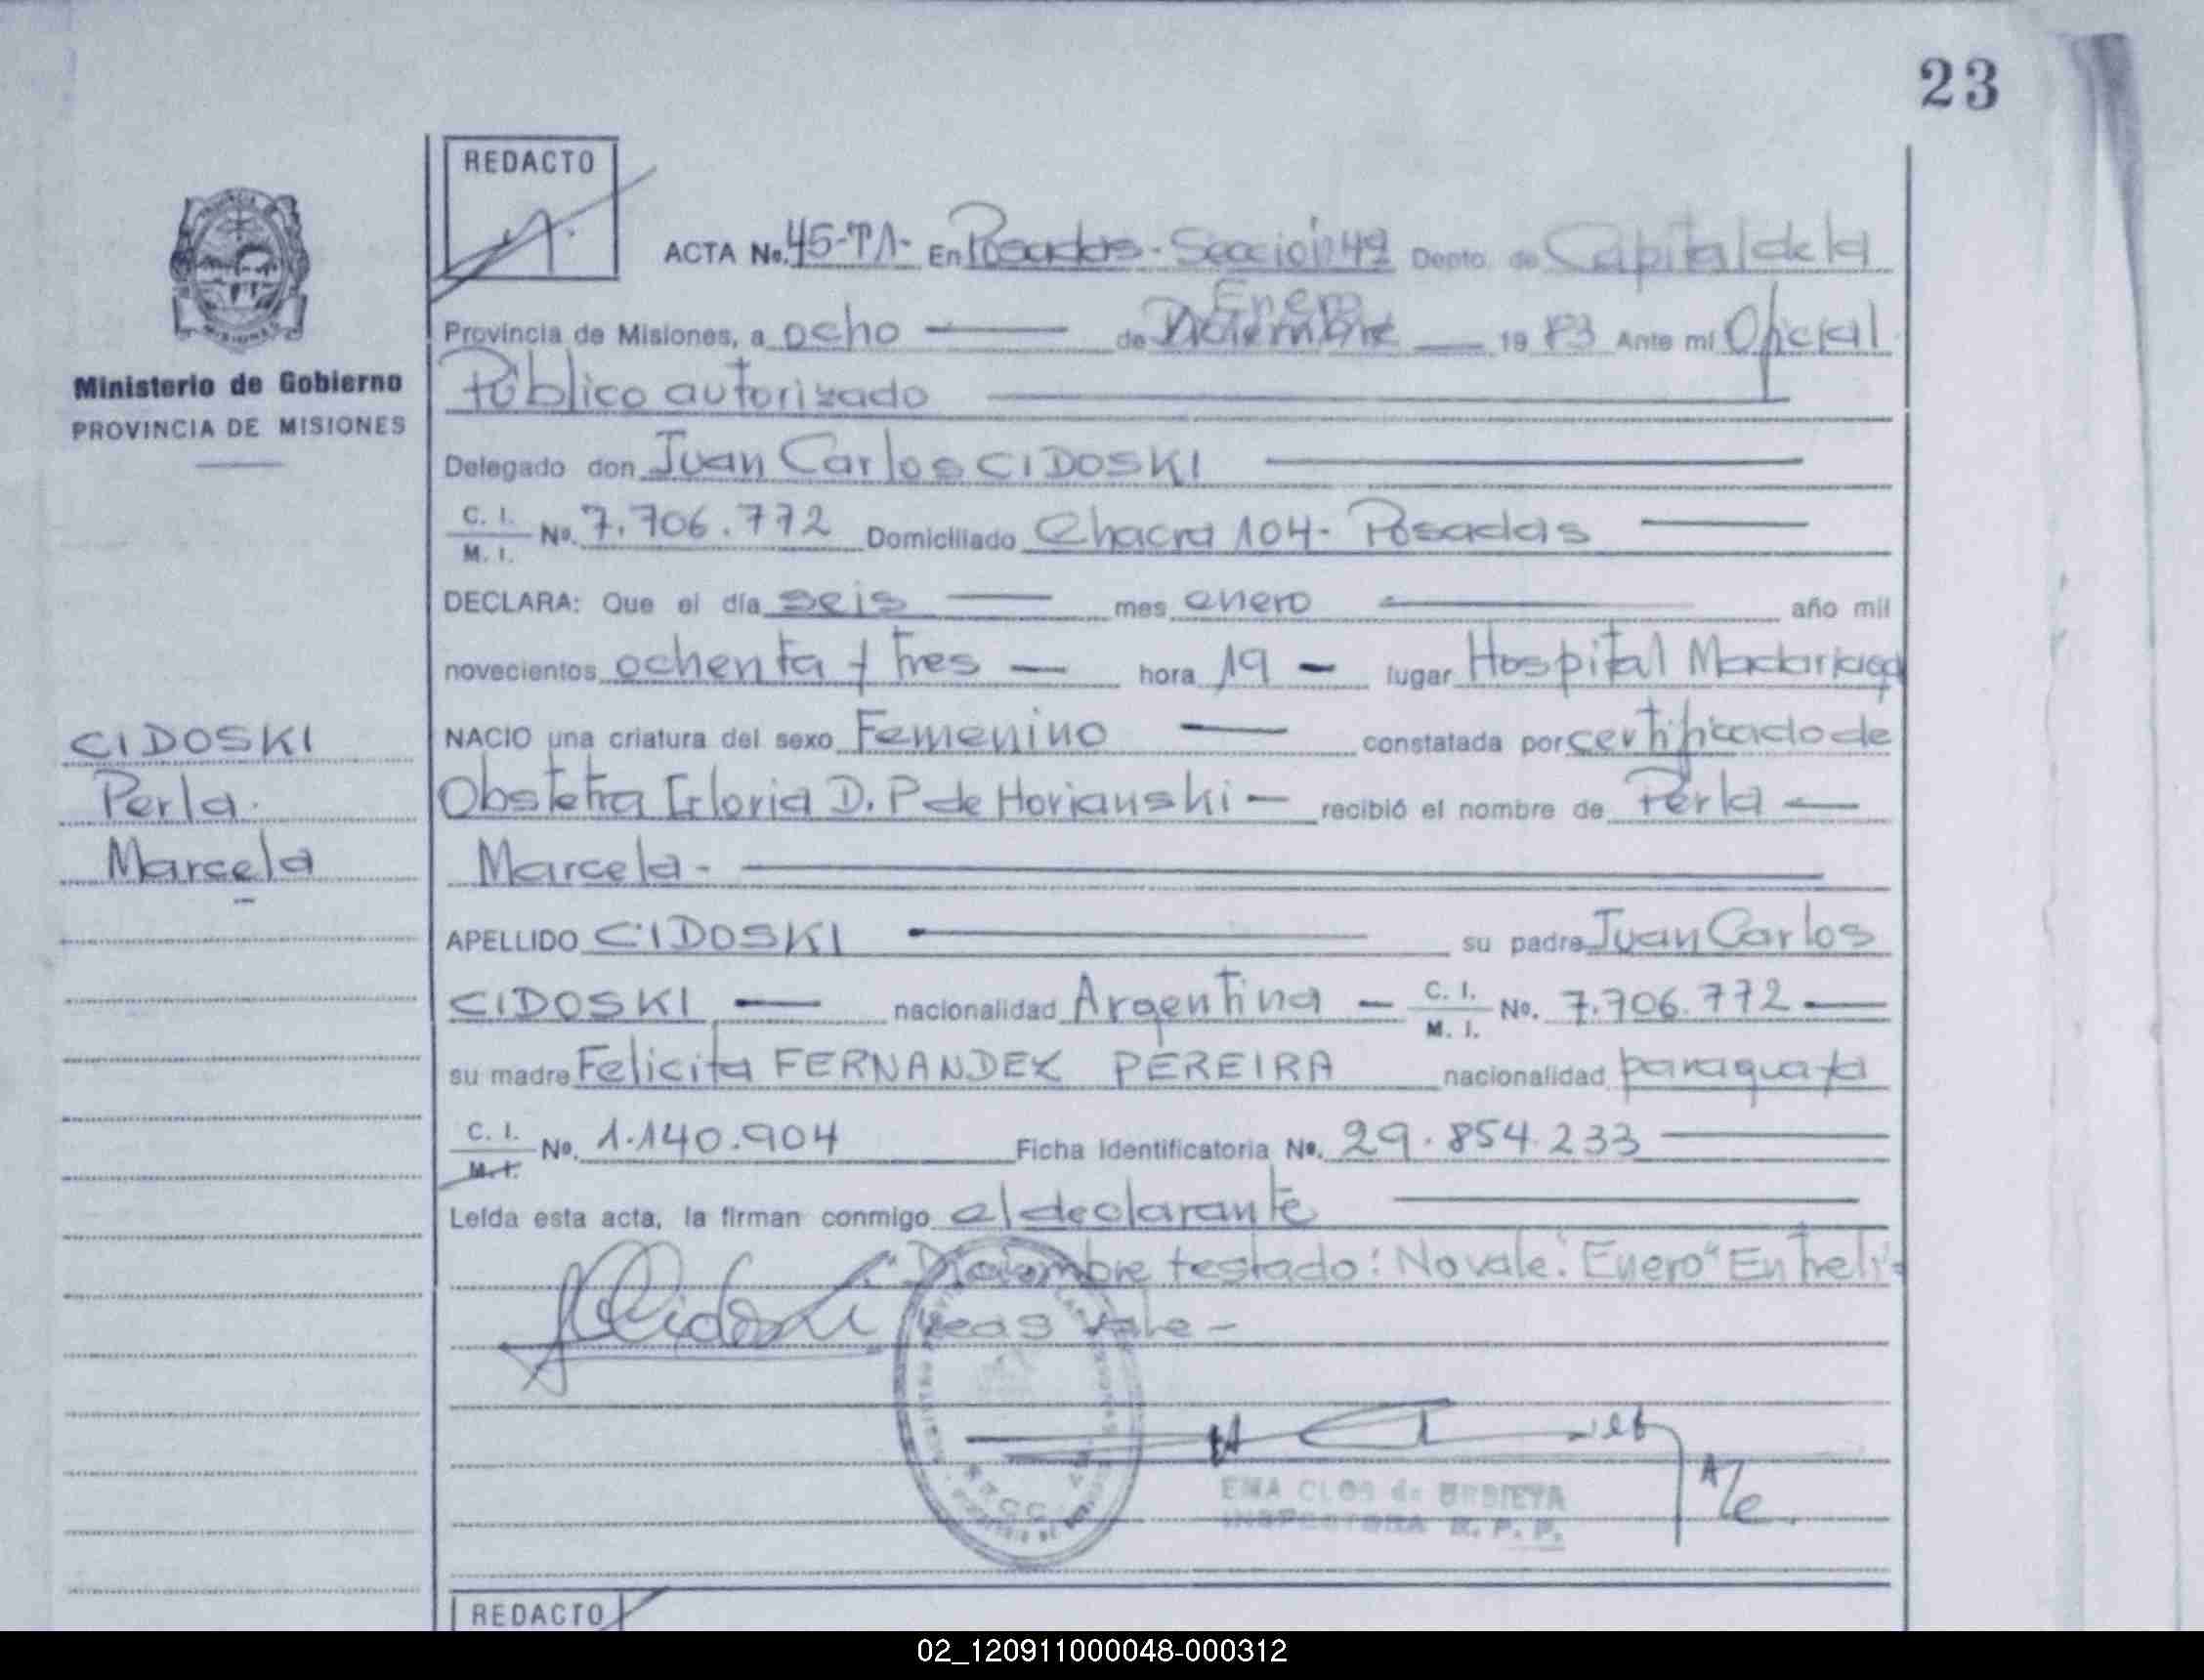 23
REDACTO
ACTA No. 45-TA- En Posadas - Sección 4ª Depto. de Capital de la
Enero
Provincia de Misiones, a ocho de Diciembre 1983 Ante mí Oficial
Público autorizado
Ministerio de Gobierno
PROVINCIA DE MISIONES
Delegado don Juan Carlos CIDOSKI
C. I. / M. I. No. 7.706.772 Domiciliado Chacra 104- Posadas
DECLARA: Que el día seis mes enero año mil
novecientos ochenta y tres hora 19 lugar Hospital Madariaga
CIDOSKI
Perla
Marcela
NACIO una criatura del sexo Femenino constatada por certificado de
Obstetra Gloria D. P. de Horianski recibió el nombre de Perla
Marcela-
APELLIDO CIDOSKI su padre Juan Carlos
CIDOSKI nacionalidad Argentina C. I. / M. I. No. 7.706.772
su madre Felicita FERNANDEZ PEREIRA nacionalidad paraguaya
C. I. / M. I. No. 1.140.904 Ficha Identificatoria No. 29.854.233
Leída esta acta, la firman conmigo el declarante
"Diciembre testado: No vale. "Enero" Entreli-
neas Vale-
EMA CLOS de URBIETA
INSPECTORA R. P. P.
REDACTO
02_120911000048-000312